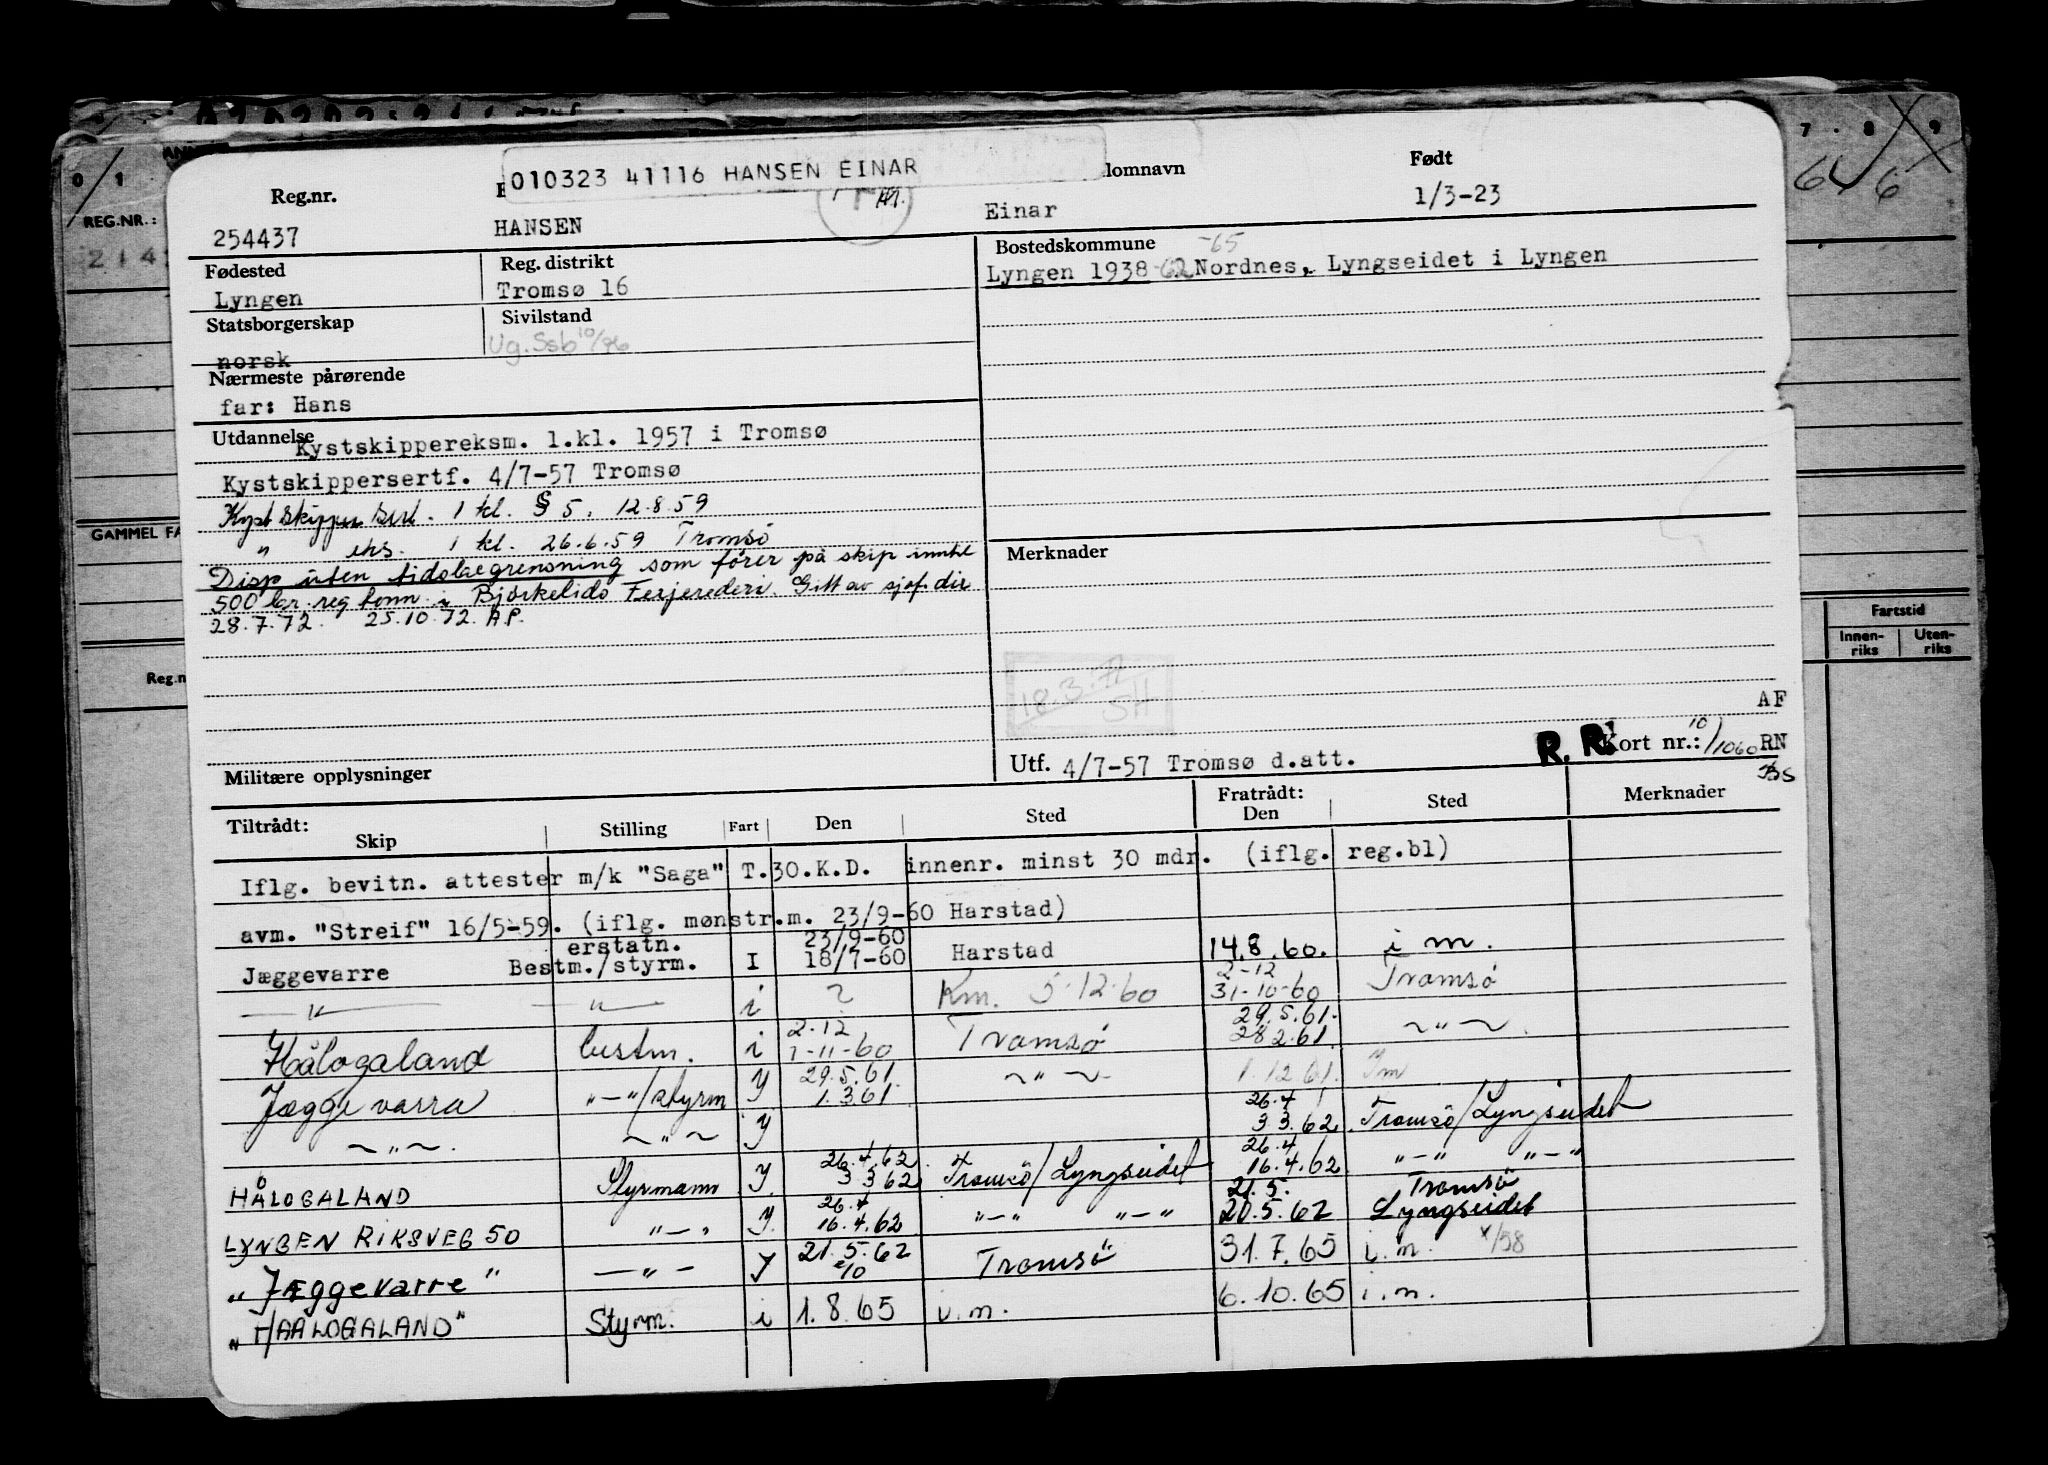 010323 41116 HANSEN EINAR
Reg.nr. lomnavn Født
254437 HANSEN Einar 1/3-23
Fødested Reg. distrikt
Lyngen Tromsø 16
Bostedskommune -65
Lyngen 1938-62 Nordnes, Lyngseidet i Lyngen
Statsborgerskap Sivilstand
norsk Ug. Ssb 10/76
Nærmeste pårørende
far: Hans
Utdannelse
Kystskippereksm. 1.kl. 1957 i Tromsø
Kystskippersertf. 4/7-57 Tromsø
Kyst Skipper Sert. 1 kl. § 5, 12.8.59
" eks. 1 kl. 26.6.59 Tromsø
Disp uten tidsbegrensning som fører på skip inntil
500 br. reg tonn i Bjørkelids Ferjerederi. Gitt av sjøf.dir
28.7.72. 25.10.72. A.P.
Merknader
18.3.
SH
AF
Militære opplysninger
Utf. 4/7-57 Tromsø d.att.
R. R. Kort nr.: 10/1060 RN
BS
Tiltrådt: Skip Stilling Fart Den Sted Fratrådt: Den Sted Merknader
Iflg. bevitn. attester m/k "Saga" T.30.K.D. innenr. minst 30 mdr. (iflg. reg.bl)
avm. "Streif" 16/5-59. (iflg. mønstr.m. 23/9-60 Harstad)
erstatn. 23/9-60
Jæggevarre Bestm./styrm. I 18/7-60 Harstad 14.8.60. i m.
2-12
—"— —"— i ? Km. 5-12-60 31-10-60 Tromsø
2.12 29.5.61.
Hålogaland bestm. i 1-11-60 Tromsø 28.2.61. ~"~.
29.5.61.
Jæggevarra "—"/styrm Y 1.3.61. ~"~ 1.12.61. Im
26.4
~"~. ~"~ Y 3.3.62. Tromsø/Lyngseidet
26.4.62. 26.4
HÅLOGALAND Styrmann Y 3 3 62 Tromsø/Lyngseidet 16.4.62 "—" "—"
26.4 21.5. Tromsø
LYNGEN RIKSVEG 50 "—" Y. 16.4.62 "—" "—" 20.5.62 Lyngseidet
"Jæggevarre" —"— Y 21.5.62 Tromsø 31.7.65 i.m. x/58
10
"HAALOGALAND" Styrm. i 1.8.65 i.m. 6.10.65 i.m.
0 1
REG.NR.:
214
GAMMEL FA
Reg.n
7 . 8 9
6 6
Fartstid
Innen-
riks
Uten-
riks